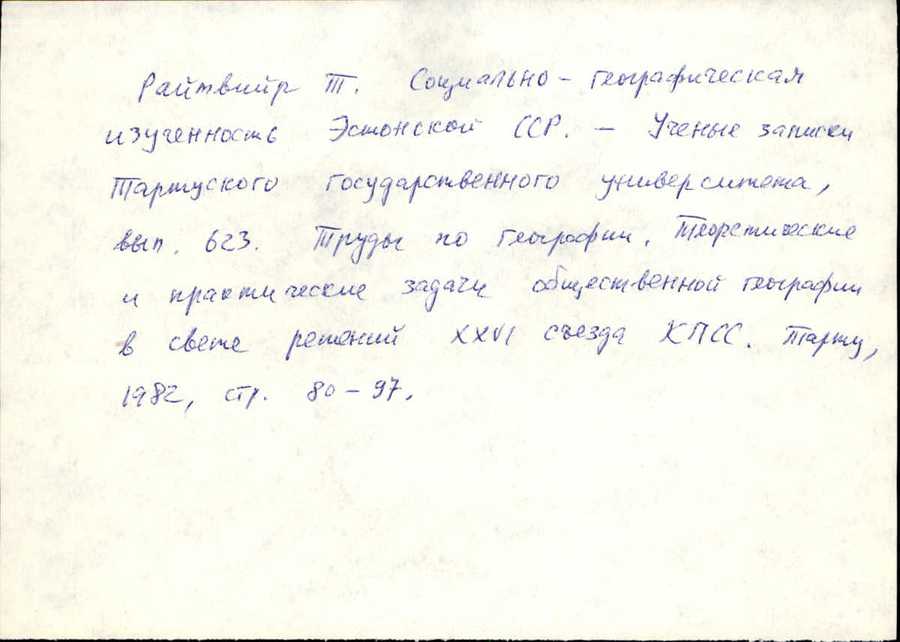 Райтвийр Т. Социально-географическая
изученность Эстонской ССР. — Ученые записки
Тартуского государственного университета,
вып. 623. Труды по географии. Теоретические
и практические задачи общественной географии
в свете решений XXVI съезда КПСС. Тарту,
1982, стр. 80-97.